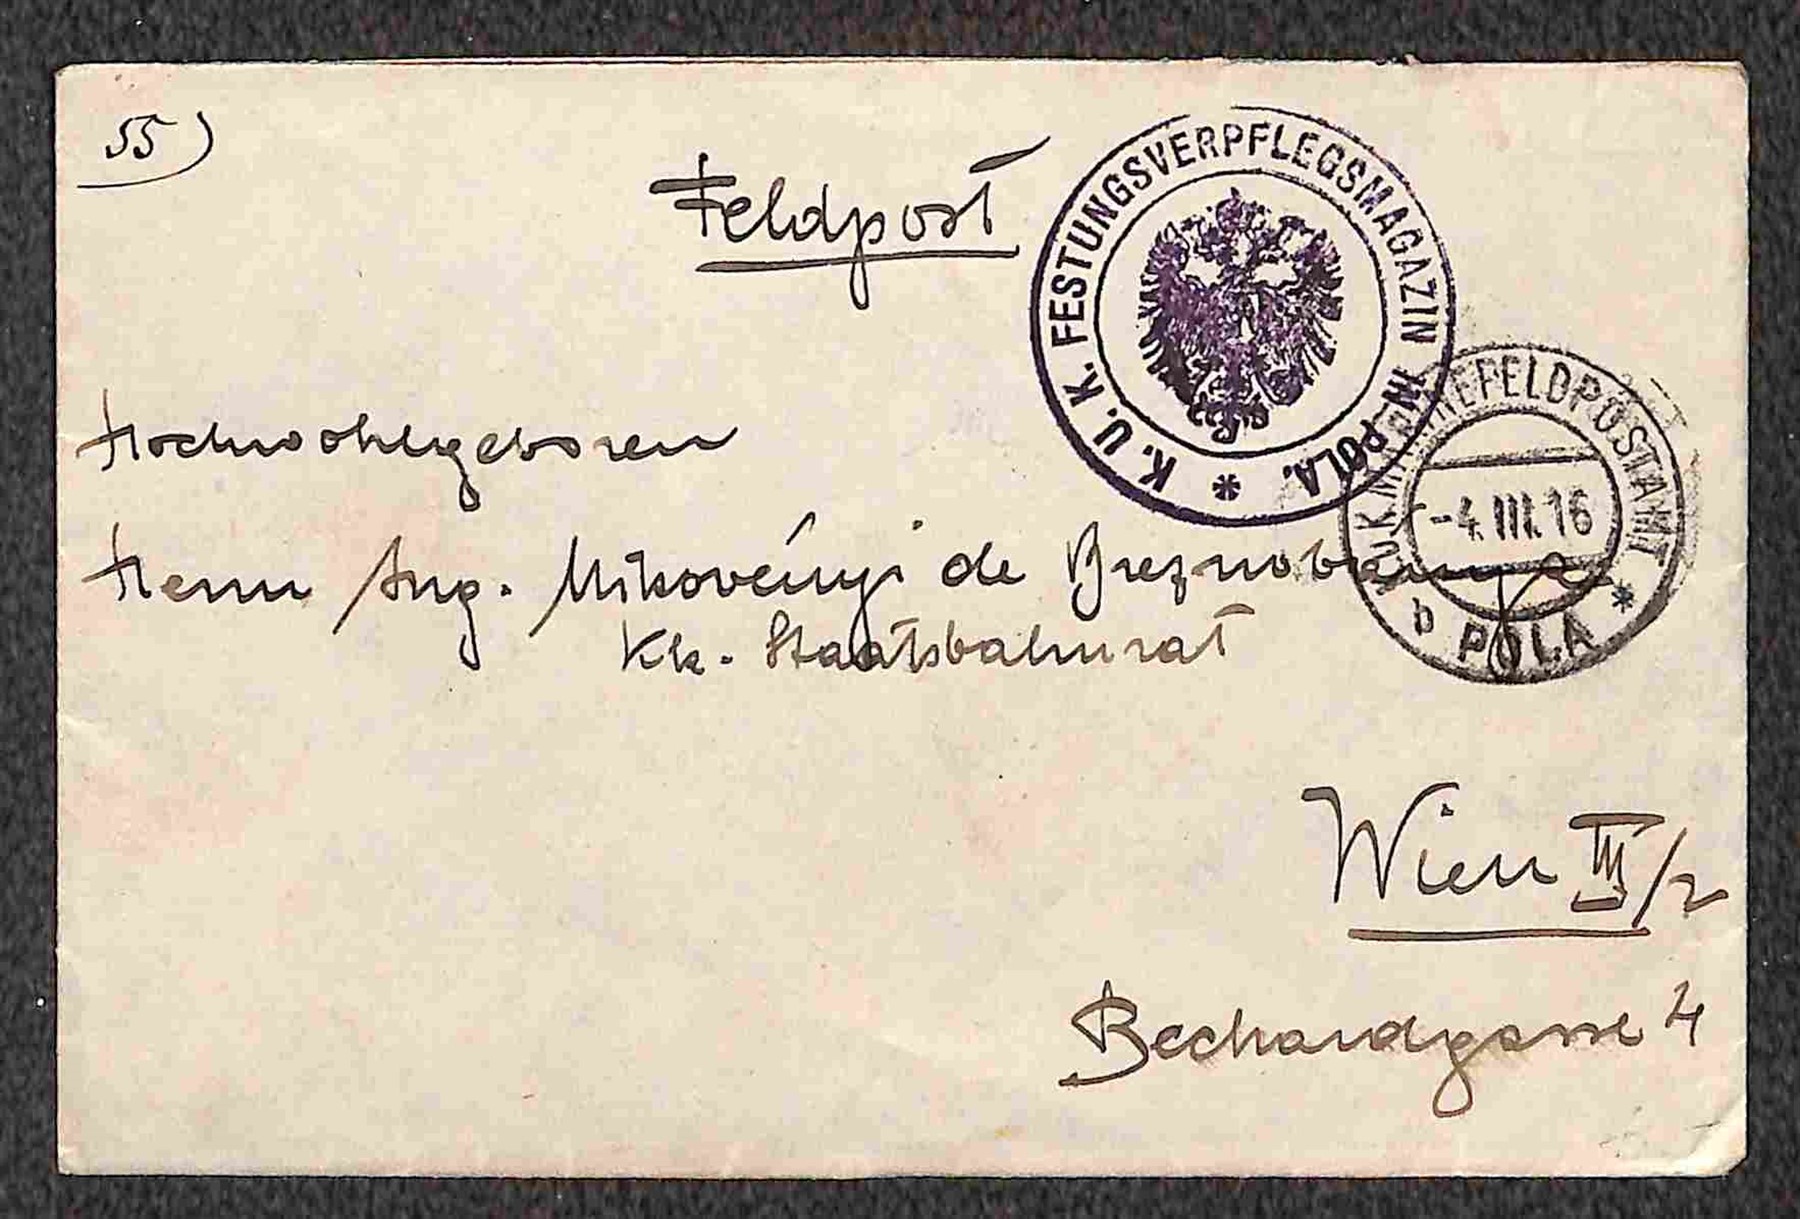 55)
Feldpost
K. U. K. FESTUNGSVERPFLEGSMAGAZIN IN POLA. *
K.U.K. MARINEFELDPOSTAMT *
-4.III.16
b POLA
Hochwohlgeboren
Herrn Ing. Mikovényi de Breznobánya
Kk. Staatsbahnrat
Wien III/2
Bechardgasse 4